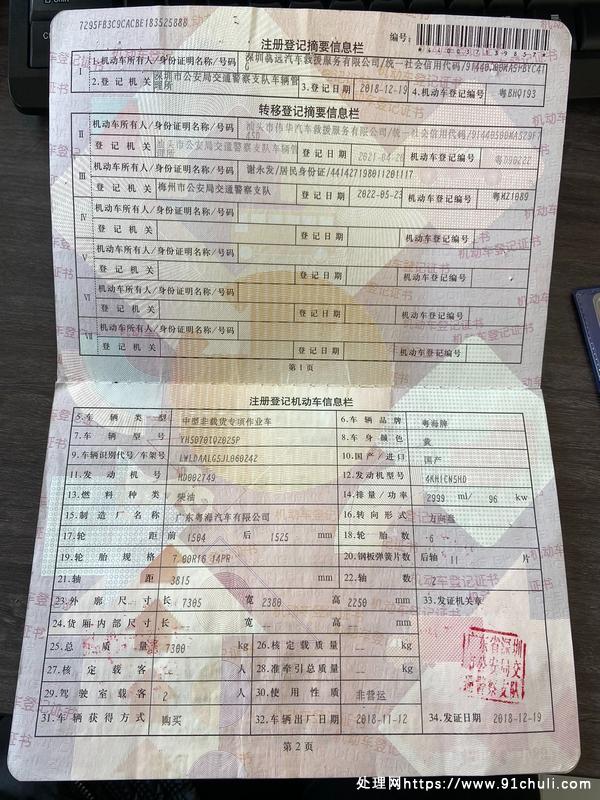 7295FB3C9CACBE183525888
编号:
注册登记摘要信息栏
Ⅰ
1.机动车所有人/身份证明名称/号码
汽车救援服务有限公司/统一社会信用代码
2.登记机关
深圳市公安局交通警察支队车辆管理所
3.登记日期
2018-12-19
4.机动车登记编号
粤BHQ193
转移登记摘要信息栏
Ⅱ
机动车所有人/身份证明名称/号码
汕头市伟华汽车救援服务有限公司/统一社会信用代码
登记机关
汕头市公安局交通警察支队车辆管理所
登记日期
机动车登记编号
Ⅲ
机动车所有人/身份证明名称/号码
谢永发/居民身份证/441427198011201117
登记机关
梅州市公安局交通警察支队
登记日期
2022-05-23
机动车登记编号
粤MZ1089
Ⅳ
机动车所有人/身份证明名称/号码
登记机关
登记日期
机动车登记编号
Ⅴ
机动车所有人/身份证明名称/号码
登记机关
登记日期
机动车登记编号
Ⅵ
机动车所有人/身份证明名称/号码
登记机关
登记日期
机动车登记编号
Ⅶ
机动车所有人/身份证明名称/号码
登记机关
登记日期
机动车登记编号
第1页
注册登记机动车信息栏
5.车辆类型 中型非载货专项作业车 6.车辆品牌 粤海牌
7.车辆型号 YH5070TQZ025P 8.车身颜色 黄
9.车辆识别代号/车架号 LWLDAALG5JL060242 10.国产/进口 国产
11.发动机号 HD002749 12.发动机型号 4KH1CN5HD
13.燃料种类 柴油 14.排量/功率 2999 ml/ 96 kw
15.制造厂名称 广东粤海汽车有限公司 16.转向形式 方向盘
17.轮距 前 1504 后 1525 mm 18.轮胎数 6
19.轮胎规格 7.00R16 14PR 20.钢板弹簧片数 后轴 11 片
21.轴距 3815 mm 22.轴数 2
23.外廓尺寸 长 7305 宽 2380 高 2250 mm 33.发证机关章
24.货厢内部尺寸 长 -- 宽 -- 高 -- mm
25.总质量 7300 kg 26.核定载质量 -- kg
27.核定载客 -- 人 28.准牵引总质量 -- kg
广东省深圳市公安局交通警察支队
29.驾驶室载客 2 人 30.使用性质 非营运
31.车辆获得方式 购买 32.车辆出厂日期 2018-11-12 34.发证日期 2018-12-19
第2页
处理网https://www.91chuli.com/